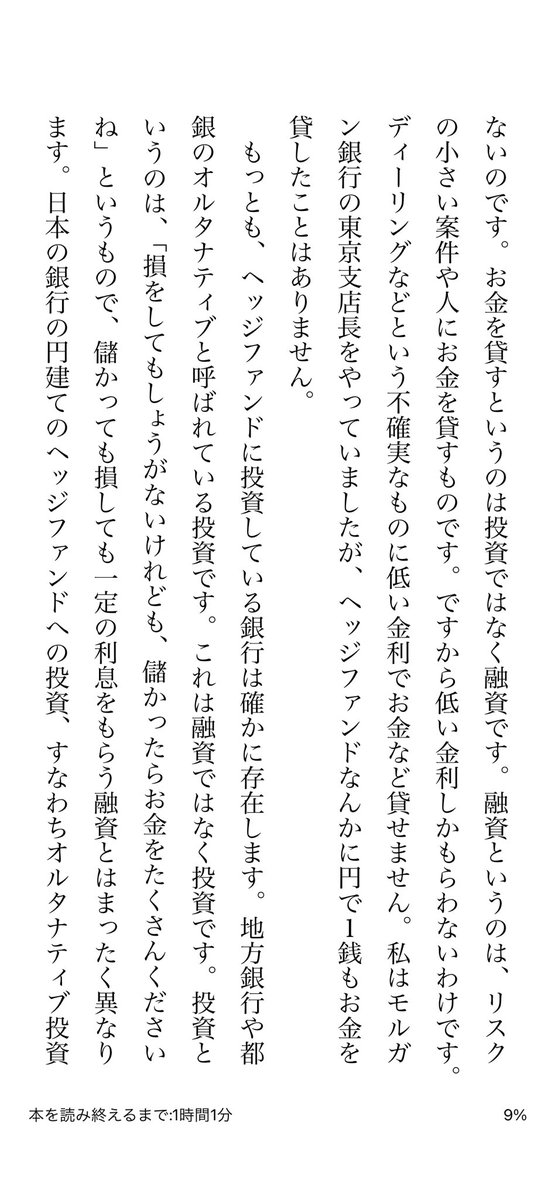 ないのです。お金を貸すというのは投資ではなく融資です。融資というのは、リスク
の小さい案件や人にお金を貸すものです。ですから低い金利しかもらわないわけです。
ディーリングなどという不確実なものに低い金利でお金など貸せません。私はモルガ
ン銀行の東京支店長をやっていましたが、ヘッジファンドなんかに円で１銭もお金を
貸したことはありません。
もっとも、ヘッジファンドに投資している銀行は確かに存在します。地方銀行や都
銀のオルタナティブと呼ばれている投資です。これは融資ではなく投資です。投資と
いうのは、「損をしてもしょうがないけれども、儲かったらお金をたくさんください
ね」というもので、儲かっても損しても一定の利息をもらう融資とはまったく異なり
ます。日本の銀行の円建てのヘッジファンドへの投資、すなわちオルタナティブ投資
本を読み終えるまで:1時間1分
9%